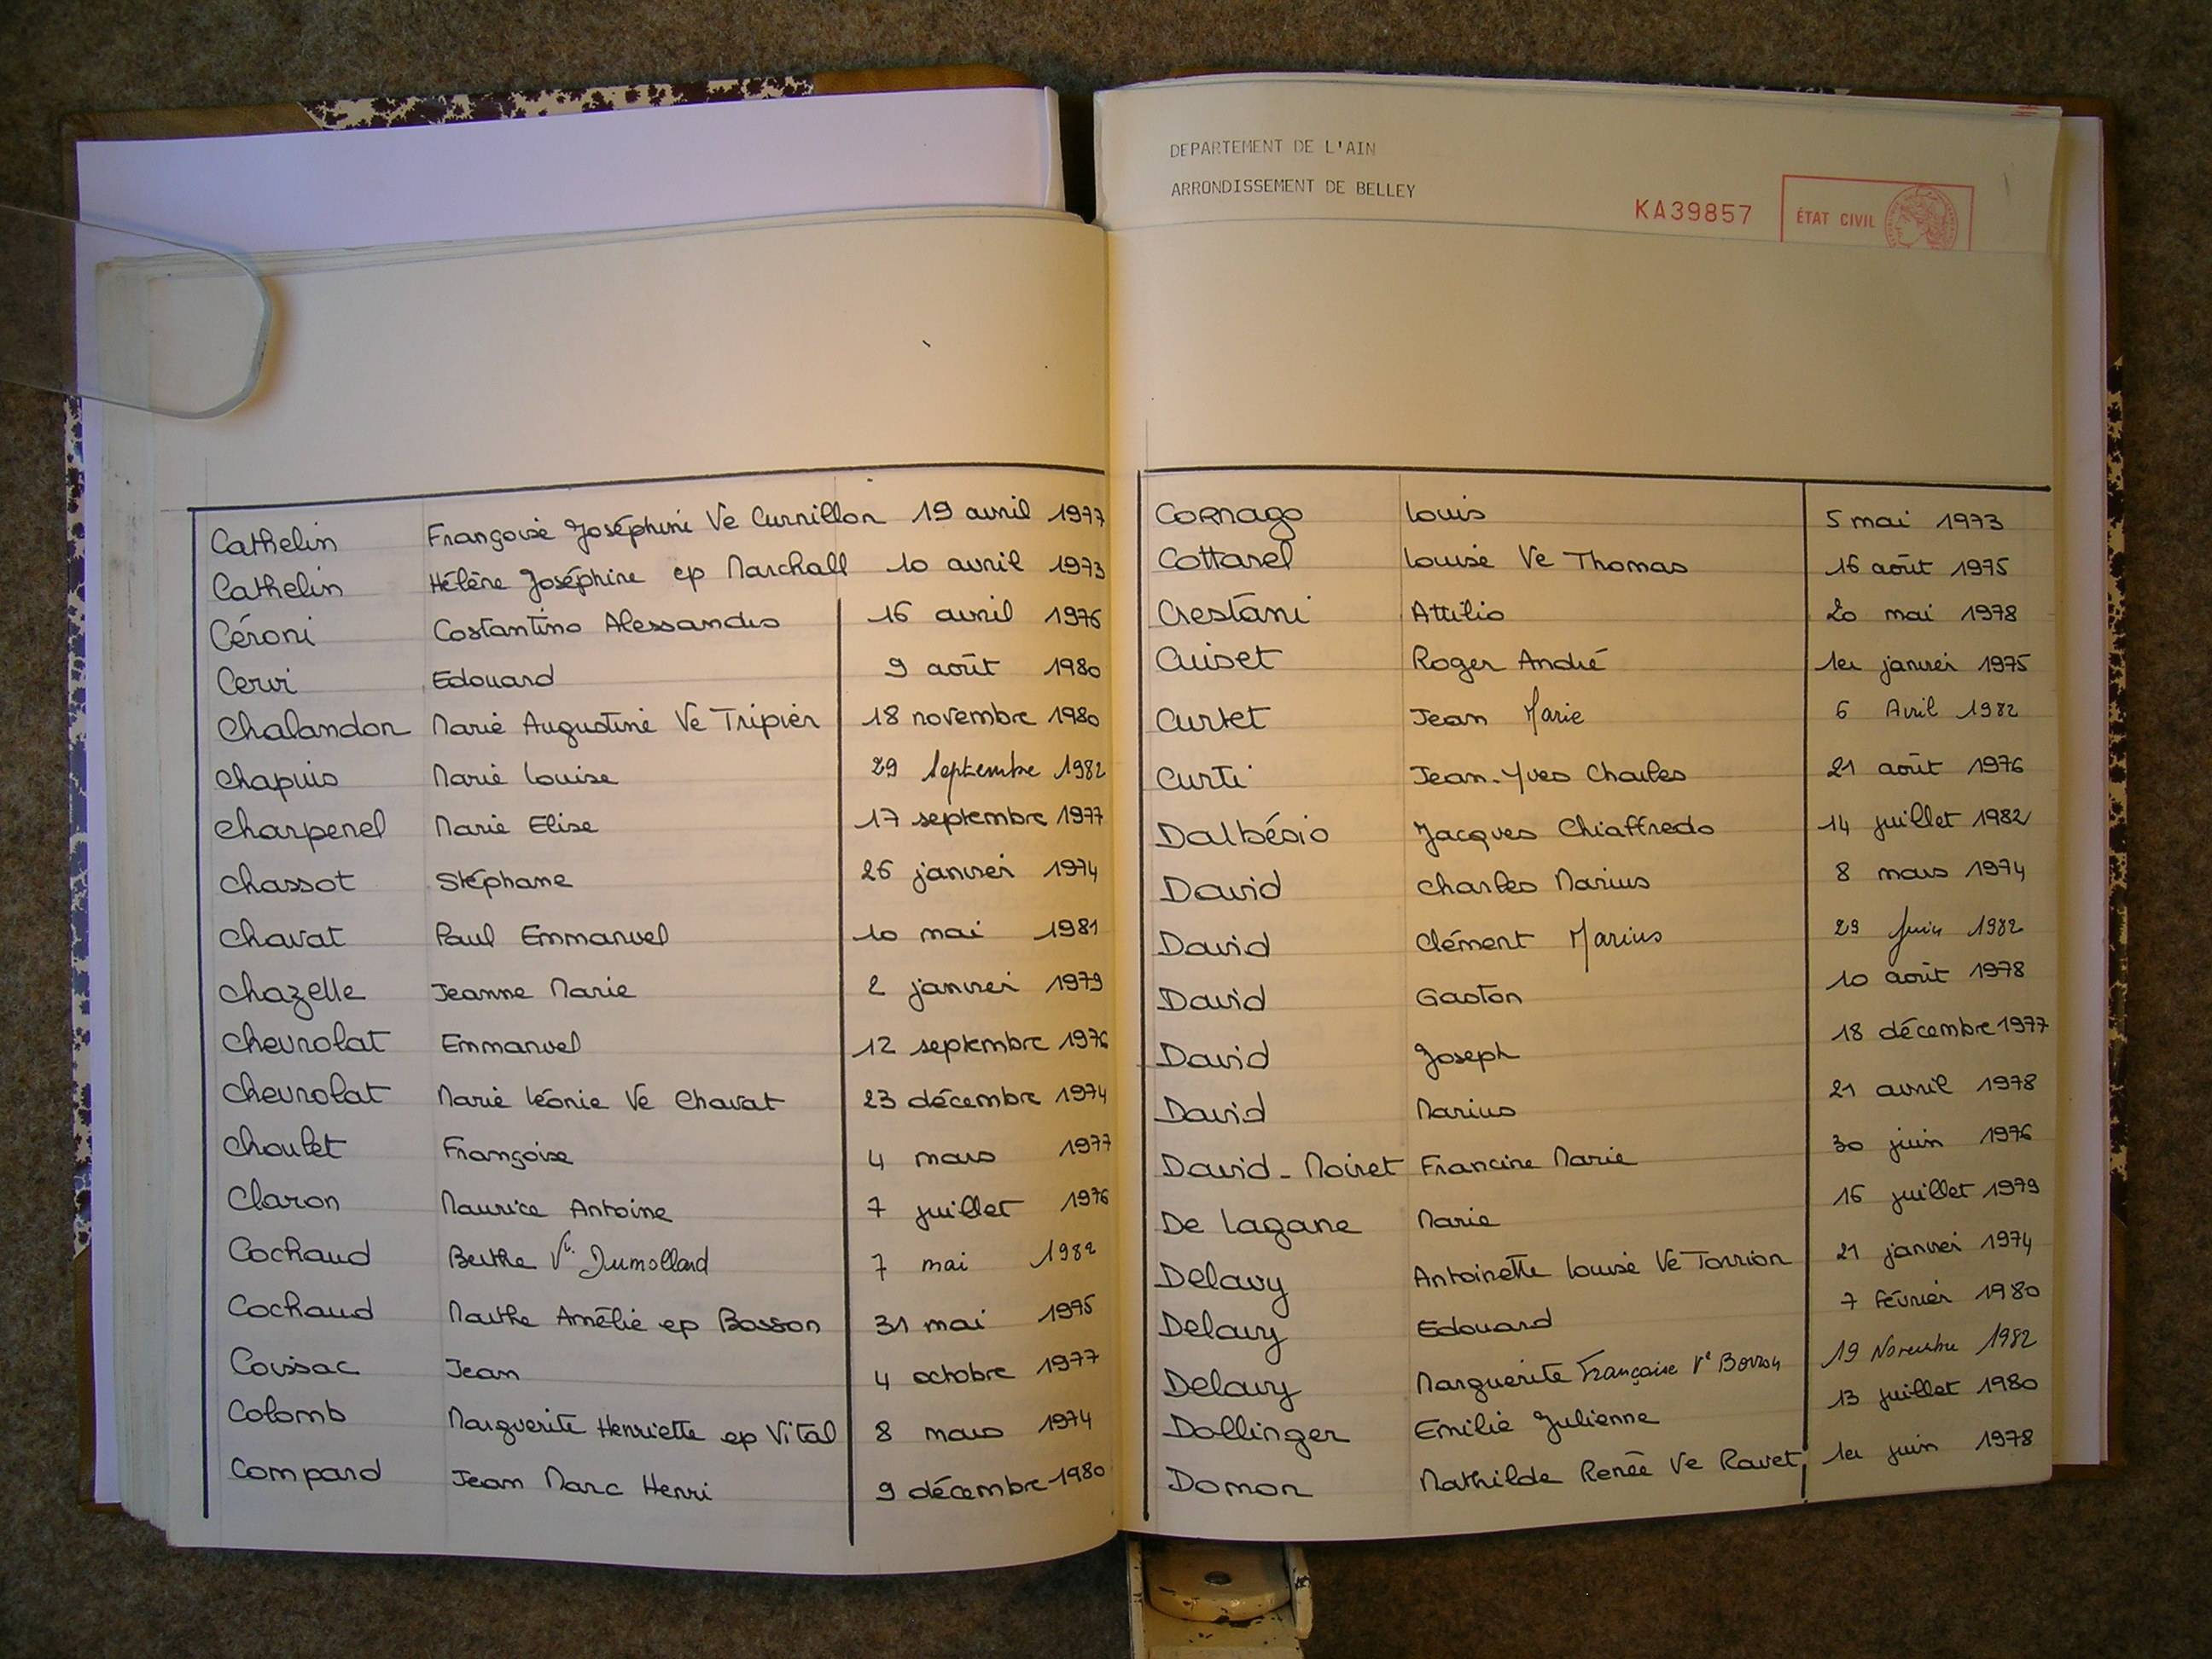 DEPARTEMENT DE L'AIN
ARRONDISSEMENT DE BELLEY
KA39857
ÉTAT CIVIL
Cathelin Françoise Joséphine Ve Curnillon 19 avril 1977
Cathelin Hélène Joséphine ep Marchall 10 avril 1973
Céroni Costantino Alessandro 16 avril 1976
Cervi Edouard 9 août 1980
Chalandon Marie Augustine Ve Tripier 18 novembre 1980
Chapuis Marie Louise 29 Septembre 1982
Charpenel Marie Elise 17 septembre 1977
Chassot Stéphane 26 janvier 1974
Chavat Paul Emmanuel 10 mai 1981
Chazelle Jeanne Marie 2 janvier 1979
Chevrolat Emmanuel 12 septembre 1976
Chevrolat Marie Léonie Ve Chavat 23 décembre 1974
Choulet Françoise 4 mars 1977
Claron Maurice Antoine 7 juillet 1976
Cochaud Berthe Ve Dumollard 7 mai 1982
Cochaud Marthe Amélie ep Bosson 31 mai 1975
Coissac Jean 4 octobre 1977
Colomb Marguerite Henriette ep Vital 8 mars 1974
Compard Jean Marc Henri 9 décembre 1980
Cornago Louis 5 mai 1973
Cottarel Louise Ve Thomas 16 août 1975
Crestani Attilio 20 mai 1978
Cuiset Roger André 1er janvier 1975
Curtet Jean Marie 6 Avril 1982
Curti Jean-Yves Charles 21 août 1976
Dalbésio Jacques Chiaffredo 14 juillet 1982
David Charles Marius 8 mars 1974
David Clément Marius 29 Juin 1982
David Gaston 10 août 1978
David Joseph 18 décembre 1977
David Marius 21 avril 1978
David-Moiret Francine Marie 30 juin 1976
De Lagane Marie 16 juillet 1979
Delavy Antoinette Louise Ve Torrion 21 janvier 1974
Delavy Edouard 7 février 1980
Delavy Marguerite Françoise Ve 19 Novembre 1982
Dollinger Emilie Julienne 13 juillet 1980
Domon Mathilde Renée Ve Ravet 1er juin 1978